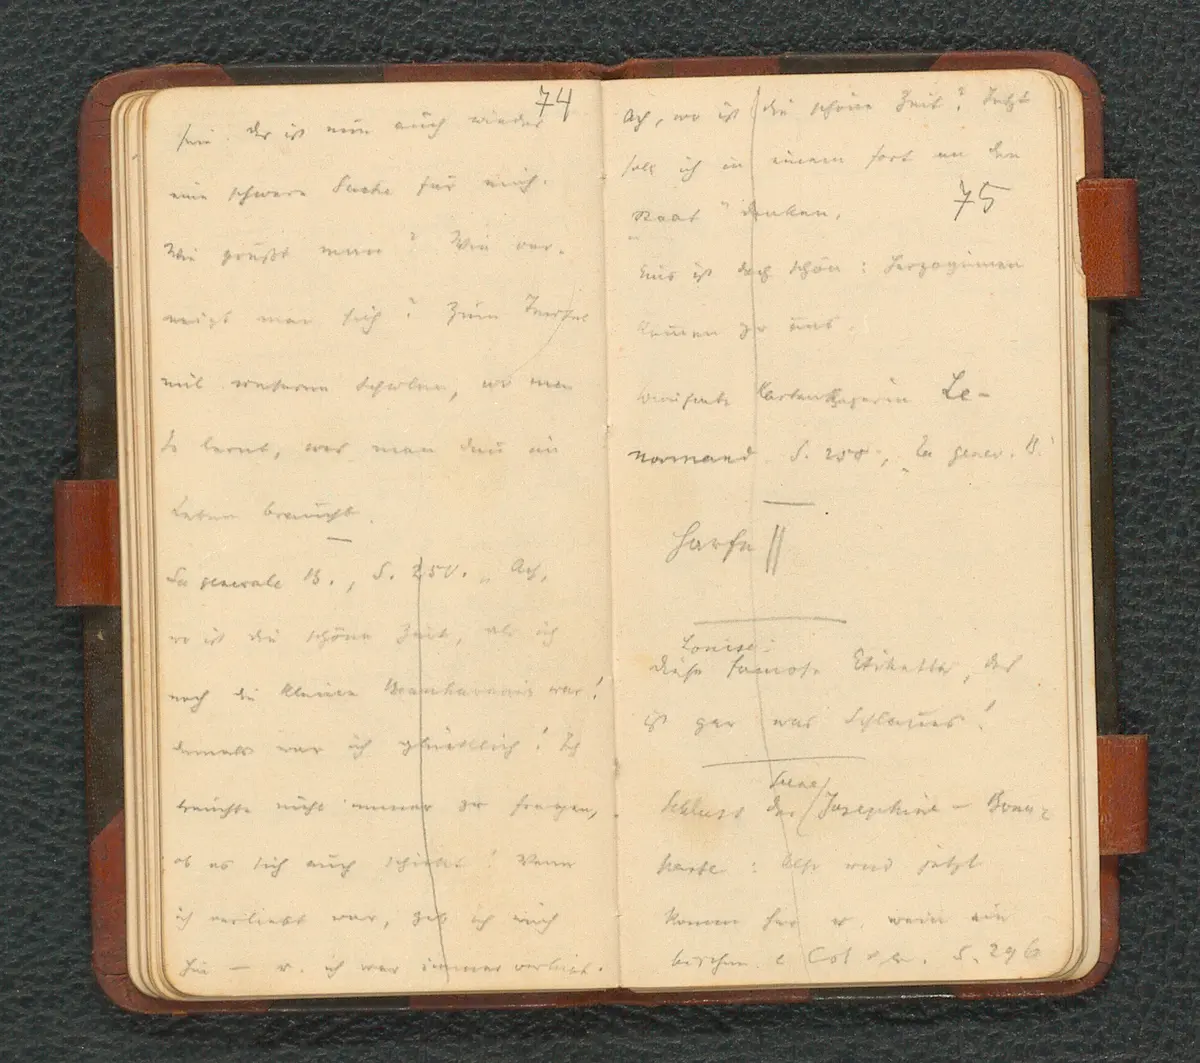 74
sein. Das ist nun auch wieder
eine schwere Sache für mich.
Wie grüßt man? Wie ver-
neigt man sich? Zum Teufel
mit unseren Schulen, wo man
so lernt, was man dann im
Leben braucht.
La generale B., S. 250. „Ach,
wo ist die schöne Zeit, als ich
noch die kleine Beauharnais war!
damals war ich glücklich! Ich
brauchte nicht immer zu fragen,
ob es sich auch schickt! Wenn
ich verliebt war, gab ich mich
hin — u. ich war immer verliebt.
Ach, wo ist die schöne Zeit? Jetzt
soll ich in einem fort an den
Staat " denken.
75
Eins ist doch schön: Herzoginnen
kommen zu uns.
Kartenlegerin Le-
normand S. 255, „La gener. B."
Harfe ||
Louise:
diese famose Etikette, das
ist gar was Schlaues!
Scene
Schluss der Josephine — Bona-
parte: Also und jetzt
komm her u. wein ein
bisschen. S. 296